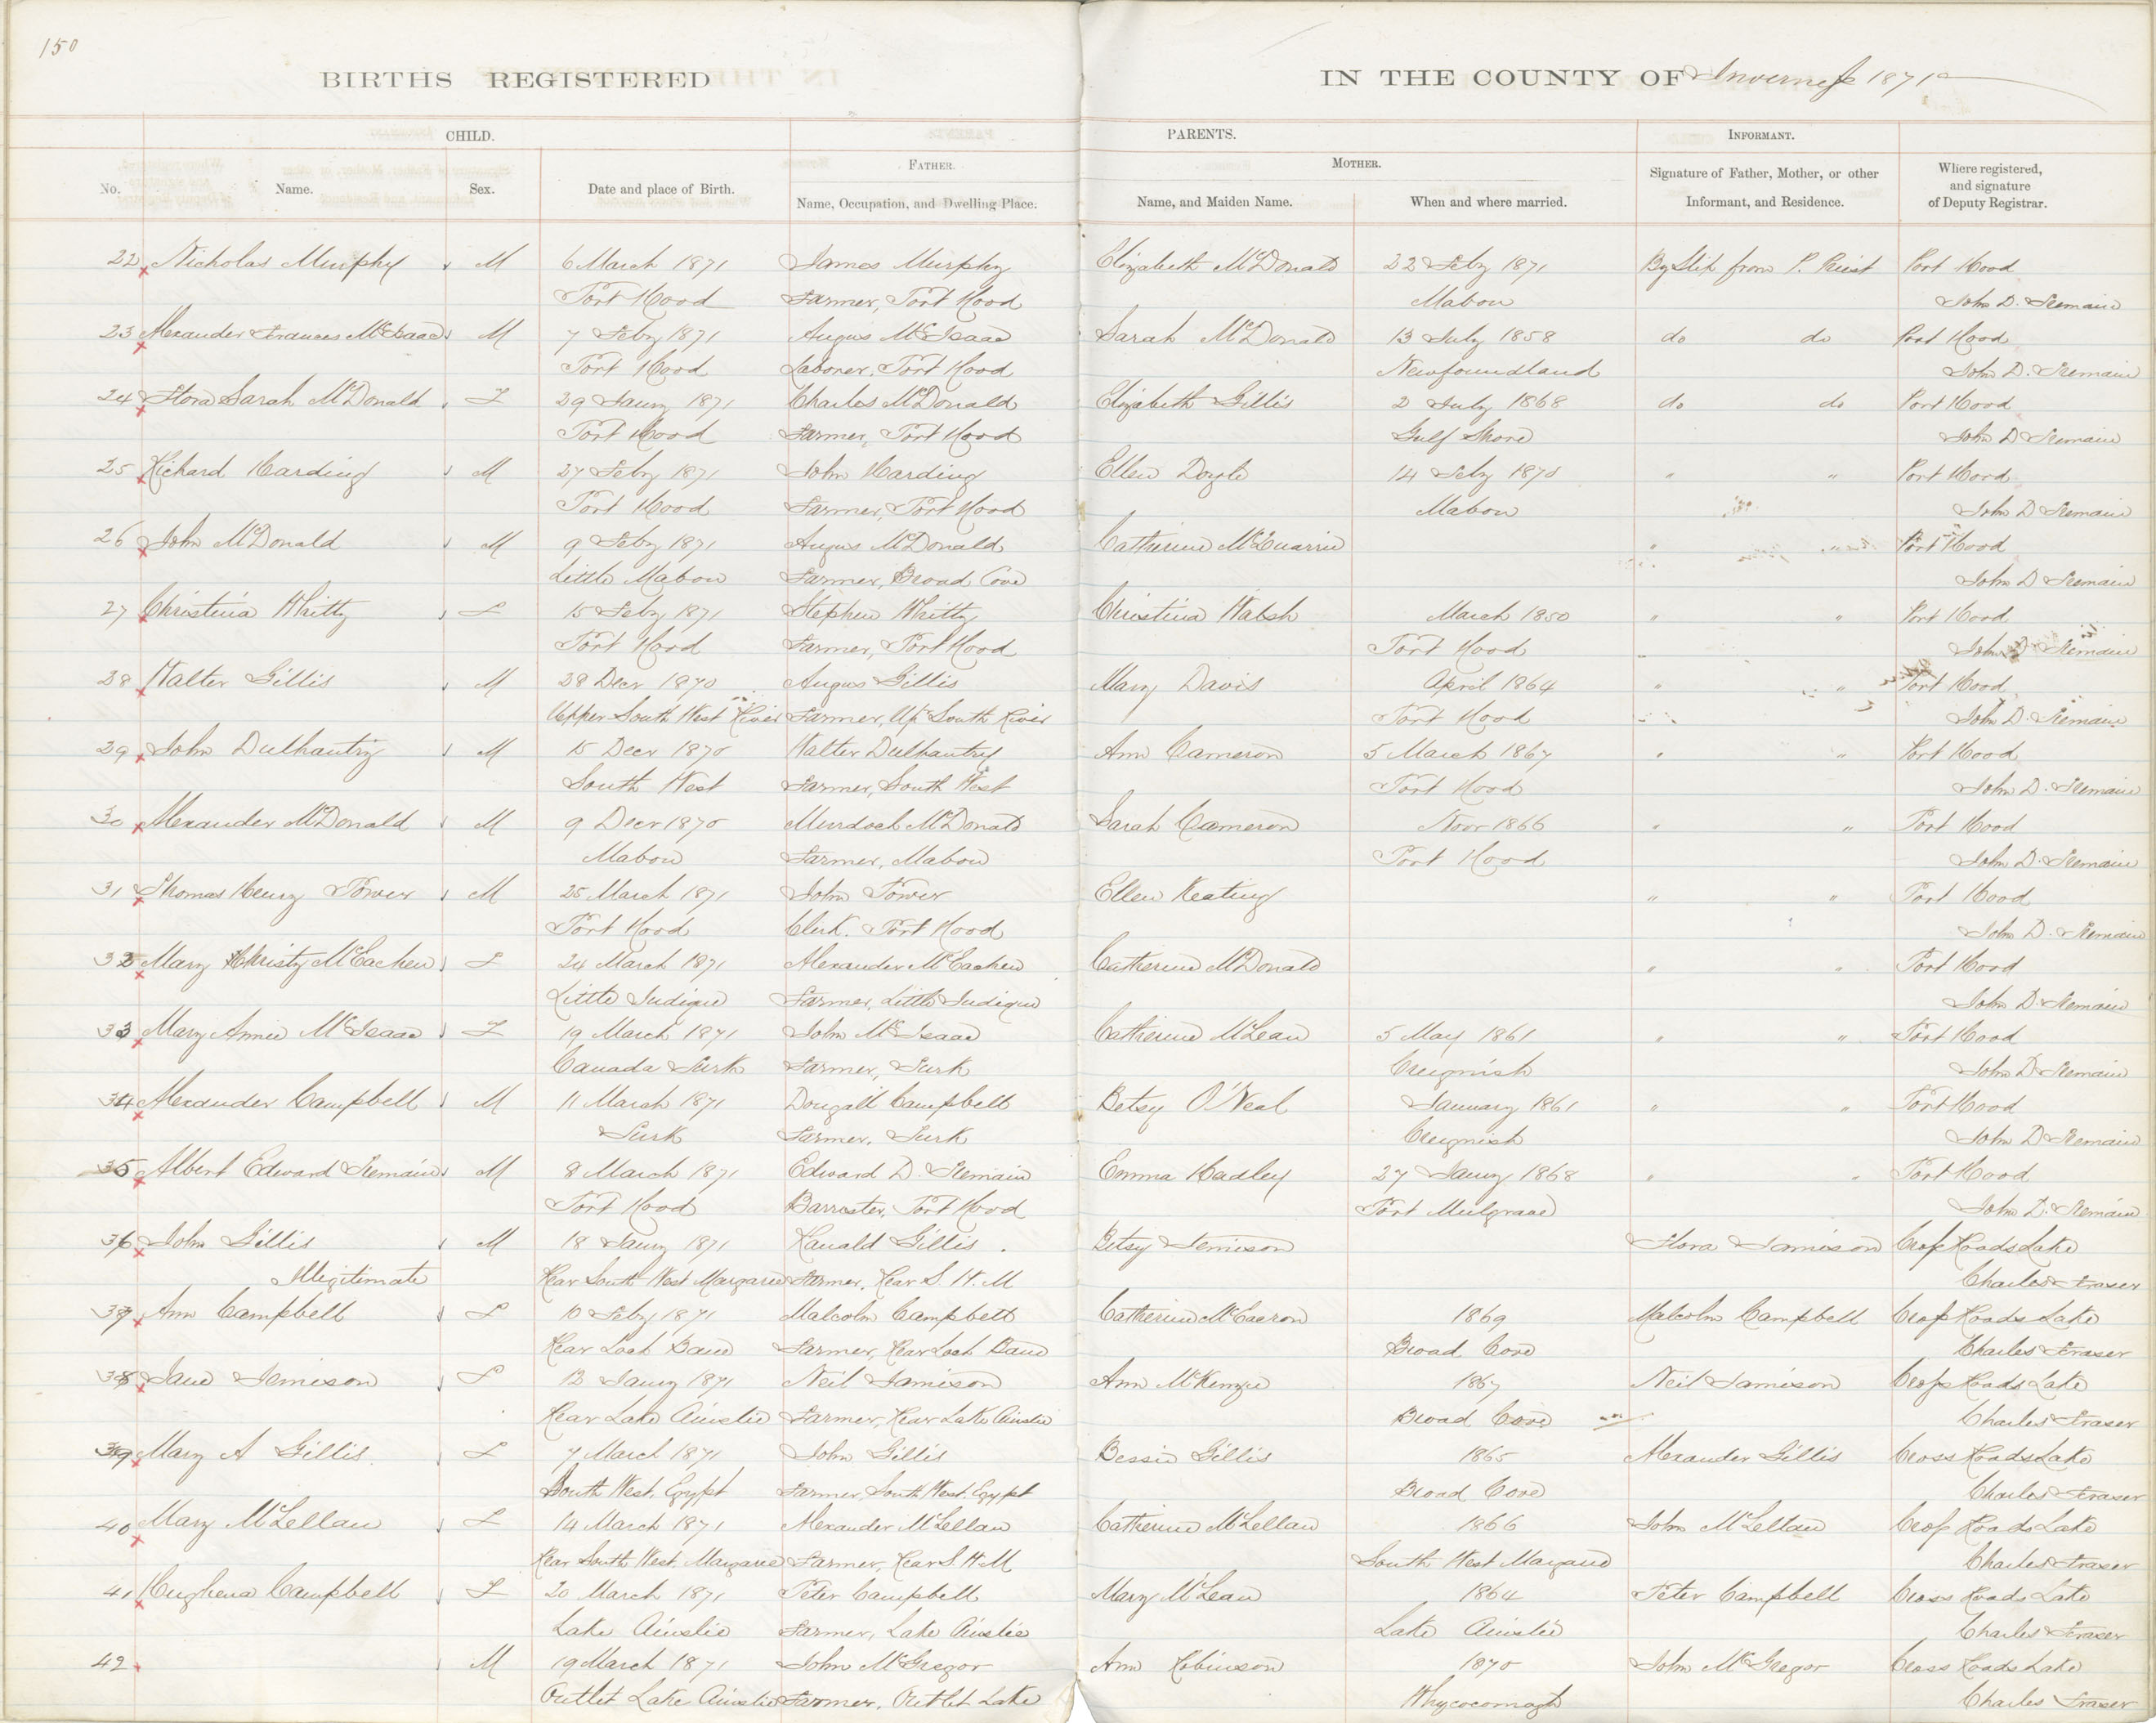 150
BIRTHS REGISTERED IN THE COUNTY OF Inverness 1871
CHILD. PARENTS. INFORMANT.
No. Name. Sex. Date and place of Birth. FATHER. Name, Occupation, and Dwelling Place. MOTHER. Name, and Maiden Name. When and where married. Signature of Father, Mother, or other Informant, and Residence. Where registered, and signature of Deputy Registrar.
22 Nicholas Murphy M 6 March 1871 James Murphy Elizabeth McDonald 22 Feby 1871 By Slip from P. Priest Port Hood
Port Hood Farmer, Port Hood Mabou John D. Tremain
23 Alexander Frances McIsaac M 7 Feby 1871 Angus McIsaac Sarah McDonald 13 July 1858 do do Port Hood
Port Hood Laborer, Port Hood Newfoundland John D. Tremain
24 Flora Sarah McDonald F 29 Jany 1871 Charles McDonald Elizabeth Gillis 2 July 1868 do do Port Hood
Port Hood Farmer, Port Hood Gulf Shore John D Tremain
25 Richard Harding M 27 Feby 1871 John Harding Ellen Doyle 14 Feby 1870 " " Port Hood
Port Hood Farmer, Port Hood Mabou John D Tremain
26 John McDonald M 9 Feby 1871 Angus McDonald Catherine McQuarrie " " Port Hood
Little Mabou Farmer, Broad Cove John D Tremain
27 Christina Whitty F 15 Feby 1871 Stephen Whitty Christina Walsh March 1850 " " Port Hood
Port Hood Farmer, Port Hood Port Hood John D Tremain
28 Walter Gillis M 28 Decr 1870 Angus Gillis Mary Davis April 1864 " " Port Hood
Upper South West River Farmer, Up South River Port Hood John D. Tremain
29 John Dulhantry M 15 Decr 1870 Walter Dulhantry Ann Cameron 5 March 1867 " " Port Hood
South West Farmer, South West Port Hood John D. Tremain
30 Alexander McDonald M 9 Decr 1870 Murdoch McDonald Sarah Cameron Novr 1866 " " Port Hood
Mabou Farmer, Mabou Port Hood John D. Tremain
31 Thomas Henry Power M 25 March 1871 John Power Ellen Keating " " Port Hood
Port Hood Clerk. Port Hood John D. Tremain
32 Mary Christy McEachen F 24 March 1871 Alexander McEachen Catherine McDonald " " Port Hood
Little Judique Farmer, Little Judique John D. Tremain
33 Mary Annie McIsaac F 19 March 1871 John McIsaac Catherine McLean 5 May 1861 " " Port Hood
Canada Turk Farmer, Turk Creignish John D Tremain
34 Alexander Campbell M 11 March 1871 Dougall Campbell Betsy O'Neal January 1861 " " Port Hood
Turk Farmer, Turk Creignish John D Tremain
35 Albert Edward Tremain M 8 March 1871 Edward D. Tremain Emma Hadley 27 Jany 1868 " " Port Hood
Port Hood Barrister, Port Hood Port Mulgrave John D. Tremain
36 John Gillis M 18 Jany 1871 Ranald Gillis. Betsy Jemison Flora Jamison Cross Roads Lake
Illegitimate Rear South West Margaree Farmer, Rear S. W. M Charles Fraser
37 Ann Campbell F 10 Feby 1871 Malcolm Campbell Catherine McEacron 1869 Malcolm Campbell Cross Roads Lake
Rear Loch Band Farmer, Rear Loch Band Broad Cove Charles Fraser
38 Jane Jemison F 12 Jany 1871 Neil Jamison Ann McKenzie 1867 Neil Jamison Cross Roads Lake
Rear Lake Ainslie Farmer, Rear Lake Ainslie Broad Cove Charles Fraser
39 Mary A Gillis F 7 March 1871 John Gillis Bessie Gillis 1865 Alexander Gillis Cross Roads Lake
South West, Egypt Farmer, South West, Egypt Broad Cove Charles Fraser
40 Mary McLellan F 14 March 1871 Alexander McLellan Catherine McLellan 1866 John McLellan Cross Roads Lake
Rear South West Margaree Farmer, Rear S W M South West Margaree Charles Fraser
41 Hughena Campbell F 20 March 1871 Peter Campbell Mary McLean 1864 Peter Campbell Cross Roads Lake
Lake Ainslie Farmer, Lake Ainslie Lake Ainslie Charles Fraser
42 M 19 March 1871 John McGregor Ann Robinson 1870 John McGregor Cross Roads Lake
Outlet Lake Ainslie Farmer, Outlet Lake Whycocomagh Charles Fraser